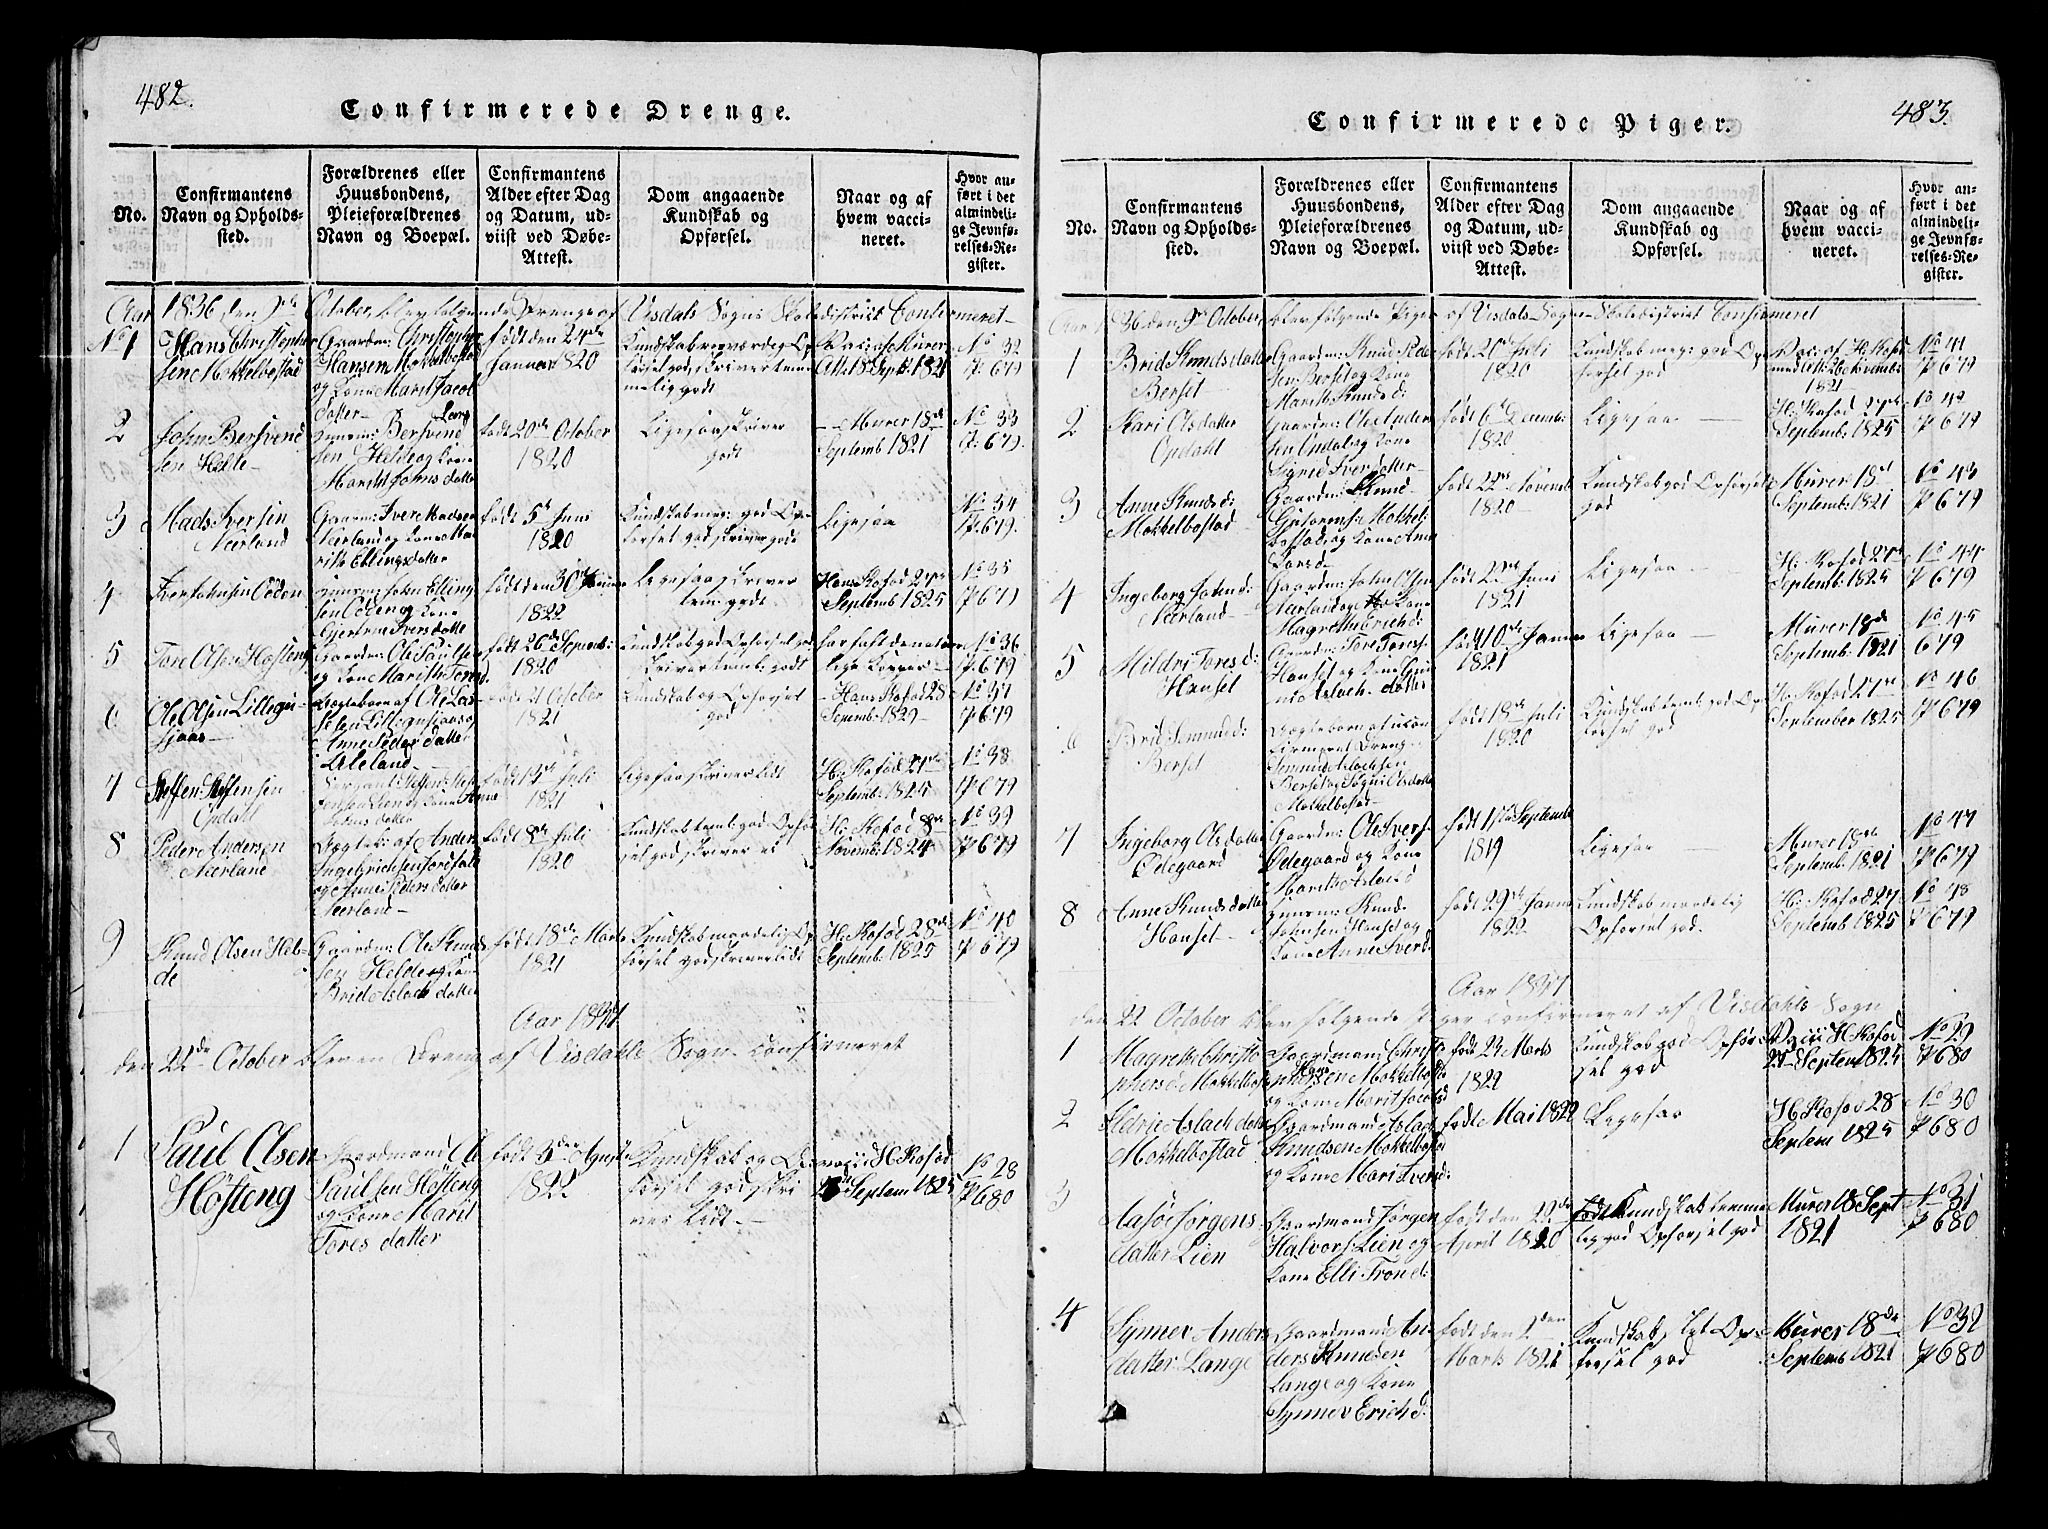 482.
Confirmerede Drenge.
No.
Confirmantens
Navn og Opholds-
sted.
Forældrenes eller
Huusbondens,
Pleieforældrenes
Navn og Boepæl.
Confirmantens
Alder efter Dag
og Datum, ud-
viist ved Døbe-
Attest.
Dom angaaende
Kundskab og
Opførsel.
Naar og af
hvem vacci-
neret.
Hvor an-
ført i det
almindeli-
ge Jevnfø-
relses-Re-
gister.
Aar 1836 den 9de October blev følgende Drenge af Visdals Sogns Skoledistrict Confirmeret
No 1
Hans Christopher
sen Mokkelbostad
Gaardm: Christopher
Hansen Mokkelbostad
og Kone Marit Jacob
datter
født den 24de
Januar 1820
Murer
Att 18 Sept 1821
No 32
P 679
2
John Bersvend
sen Helle
Bersvend
sen Helde og Kone
Marith Johnsdatter
født 20de October
1820
Ligesaa skriver
godt
Murer 18de
Septemb 1821
No 33
P. 679.
3
Mads Iversen
Neerland
Gaardm: Iver Madsen
Neerland og Kone Ma
rith Ellingsdatter
født 5te Juni
1820
Kundskab meg: god Op
førsel god skriver godt
Ligesaa
No 34
P 679.
4
Iver Johnsen Öden
John Elling
sen Öden og Kone
Gjertrue Iversdatter
født den 30te
1822
Ligesaa skriver
tem: godt
Hans Kofod 27de
Septemb 1825
No 35
P 679
5
Tore Olsen Høsteng
Gaardm: Ole Paulsen
og Kone Marith Tores d
født 26de Septemb:
1820
Kundskab god Opførsel god
skriver temb: godt
har havt de natur
lige Kopper
No 36
P 679
6
Ole Olsen Lillegu
sjaas
Ægteborn af Ole La
Anne Peders datter
Lileland
født 21 October
1821
Kundskab og Opførsel
god
Hans Kofod 28
Septemb 1829
No 37
P 679
7
Steffen Steffensen
Opdahl
Sergeant Steffen Stef
fensen Lien og Kone Anne
Johns datter
født 14de Juli
1821
Ligesaa skriver lidt
H: Kofod 27de
Septemb: 1825
No 38
P 679
8
Peder Andersen
Neerland
Anders
Ingebrichtsen
og Anne Peders datter
Neerland
født 8de Juli
1820
Kundskab temb: god Opfør
sel god skriver ei
H: Kofod 8de
Novemb: 1824
No 39
P 679
9
Knud Olsen Hel-
de
Gaardm: Ole Knud
sen Helde og Kone
Brid Aslach datter
født 18de Marts
1821
Kundskab maadelig Op
førsel god skriver lidt
H: Kofod 28de
Septemb: 1825
No 40
P 679
Aar 1837
den 22de October blev en Dreng af Visdahls Sogn Confirmeret
1
Paul Olsen
Høsteng
Gaardmand Ole
Paulsen Høsteng
og Kone Marit
Tores datter
født 5te Agust
1822
Kundskab og Op
førsel god skri
ver lidt
H Kofod
Septem 1825
No 28
P 680
483.
Confirmerede Piger.
No.
Confirmantens
Navn og Opholds-
sted.
Forældrenes eller
Huusbondens,
Pleieforældrenes
Navn og Boepæl.
Confirmantens
Alder efter Dag
og Datum, ud-
viist ved Døbe-
Attest.
Dom angaaende
Kundskab og
Opførsel.
Naar og af
hvem vacci-
neret.
Hvor an-
ført i det
almindeli-
ge Jevnfø-
relses-Re-
gister.
Aar 1836 den 9de October blev følgende Piger af Visdals Sogne Skoledistrict Confirmeret
1
Brid Knudsdatter
Berset
Gaardm: Knud Peder
sen Berset og Kone
Marith Knuds d:
født 20de Juli
1820
Kundskab meg: god Op
førsel god
Vac: af H: Kofod
26 Novemb:
1821
No 41
P 679
2
Kari Olsdatter
Opdahl
Gaardm: Ole Ander
sen Opdal og Kone
Sigrid Iversdatter
født 6te Decemb:
1820
Ligesaa
H: Kofod 27de
Septemb: 1825
No 42
P 679
3
Anne Knudsd:
Mokkelbostad
Gaardm: Knud
Guttorms: Mokkel
bostad og Kone Anne
født 22de Novemb
1820
Kundskab god Opførsel
god
Murer 18de
Septemb: 1821
No 43
P 679
4
Ingeborg John d:
Neerland
Gaardm: John Olsen
Neerland og Kone
Magreth Erich d:
født 22de Juni
1821
Ligesaa
H: Kofod 27de
Septemb 1825
No 44
P 679
5
Mildri Tores d:
Hansel
Gaardm: Tore Tores
Hansel og Kone Gun
nil Aslach datter
født 10de Januar
1821
Ligesaa
Murer 18de
Septemb: 1821
No 45
679
6
Brid Semund d:
Berset
Ægteborn af ukon
firmeret Dreng
Semund Aslachsen
Berset og Sogni Olsdatter
Mokkelbostad
født 18de Juli
1820
Kundskab temb: god Op
førsel god
H: Kofod 27de
September 1825
No 46
P 679
7
Ingeborg Olsdatter
Ødegaard
Gaardm: Ole Ivers
Ødegaard og Kone
Marith Aslach d
født 1ste Septemb
1819
Ligesaa
Murer 18de
Septemb: 1821
No 47
P 679
8
Anne Knudsdatter
Hansel
Knud
Johnsen Hansel og
Kone Anne Iversd:
født 29de Januar
1822
Kundskab maadelig
Opførsel god
H: Kofod 27
Septemb 1825
No 48
P 679
Aar 1837
den 22 October blev følgende Piger Confirmeret af Visdahls Sogn
1
Magreth Christo
phers d Mokkelbos
Gaardmand Christo
pher Hans
sen Mokkelbosta
og Kone Marit Jacobs d
født 24 Marts
1822
Kundskab god Opfør
sel god
H Kofod
27 Septem 1825
No 29
P 680
2
Ildrie Aslach datter
Mokkelbostad
Gaardmand Aslach
Knudsen Mokkelbosta
og Kone Mari Iversd:
født Mai 1822
Ligesaa
H Kofod 28
Septem 1825
No 30
P 680
3
Aasøe Jørgens
datter Lien
Gaardmand Jørgen
Halvors: Lien og
Kone Elli Trond:
født den 22de
April 1820
Kundskab temme
lig god Opførsel god
Murer 18 Sept
1821
No 31
P 680
4
Synnev Anders
datter Lange
Gaardmand An
ders Knudsen
Lange og Kone
Synnev Erich d:
født den 2den
Marts 1821
Kundskab, lgt Op
førsel god
Murer 18de
Septemb 1821
No 32
P 680